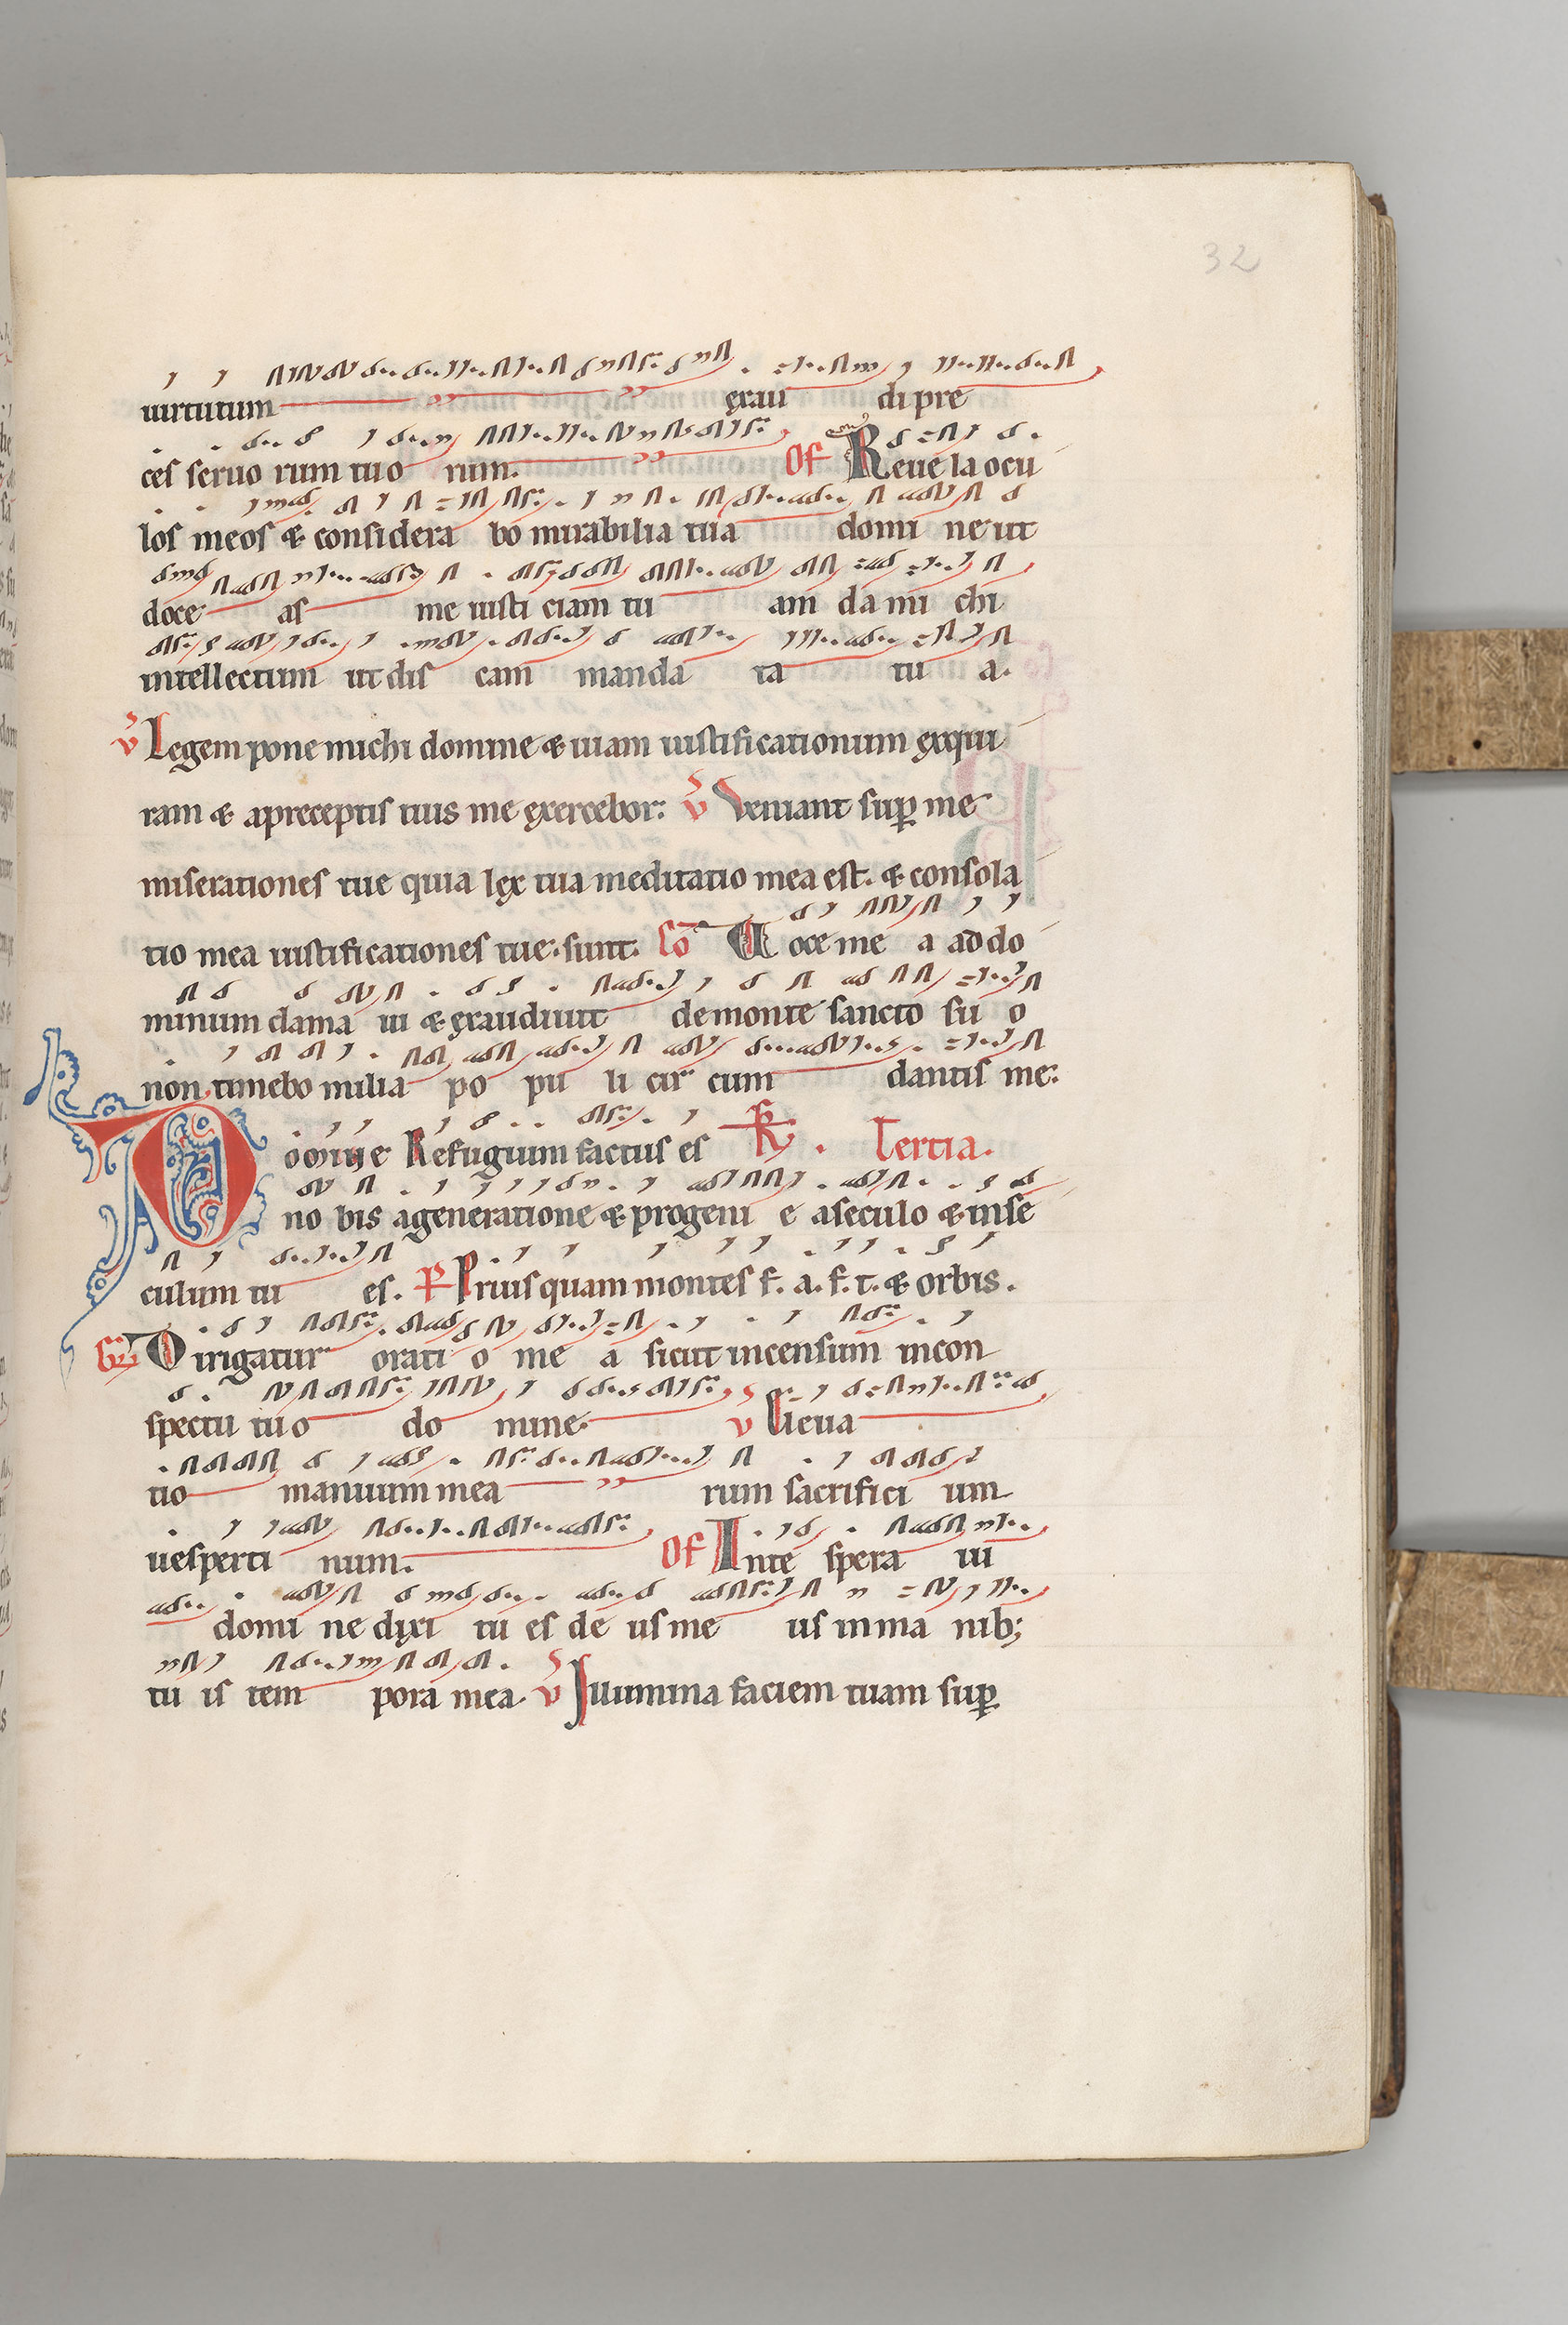 32
uirtutum exau di pre
ces seruo rum tuo rum. Of Reue la ocu
los meos & considera bo mirabilia tua domi ne ut
doce as me iusti ciam tu am da mi chi
intellectum ut dis cam manda ta tu a.
v Legem pone michi domine & uiam iustificationum exqui
ram & a preceptis tuis me exercebor: v Veniant sup me
miserationes tue quia lex tua meditatio mea est. & consola
tio mea iustificationes tue sunt. Co Uoce me a ad do
minum clama ui & exaudiuit de monte sancto su o
non timebo milia po pu li cir cum dantis me:
Domine Refugium factus es Tertia.
no bis a generatione & progeni e a seculo & in se
culum tu es. P Priusquam montes f. a. f. t. & orbis.
Gr Dirigatur orati o me a sicut incensum in con
spectu tuo do mine. v Eleua
tio manuum mea rum sacrifici um
uesperti num. Of In te spera ui
domi ne dixi tu es de us me us in ma nib;
tu is tem pora mea. v Illumina faciem tuam sup